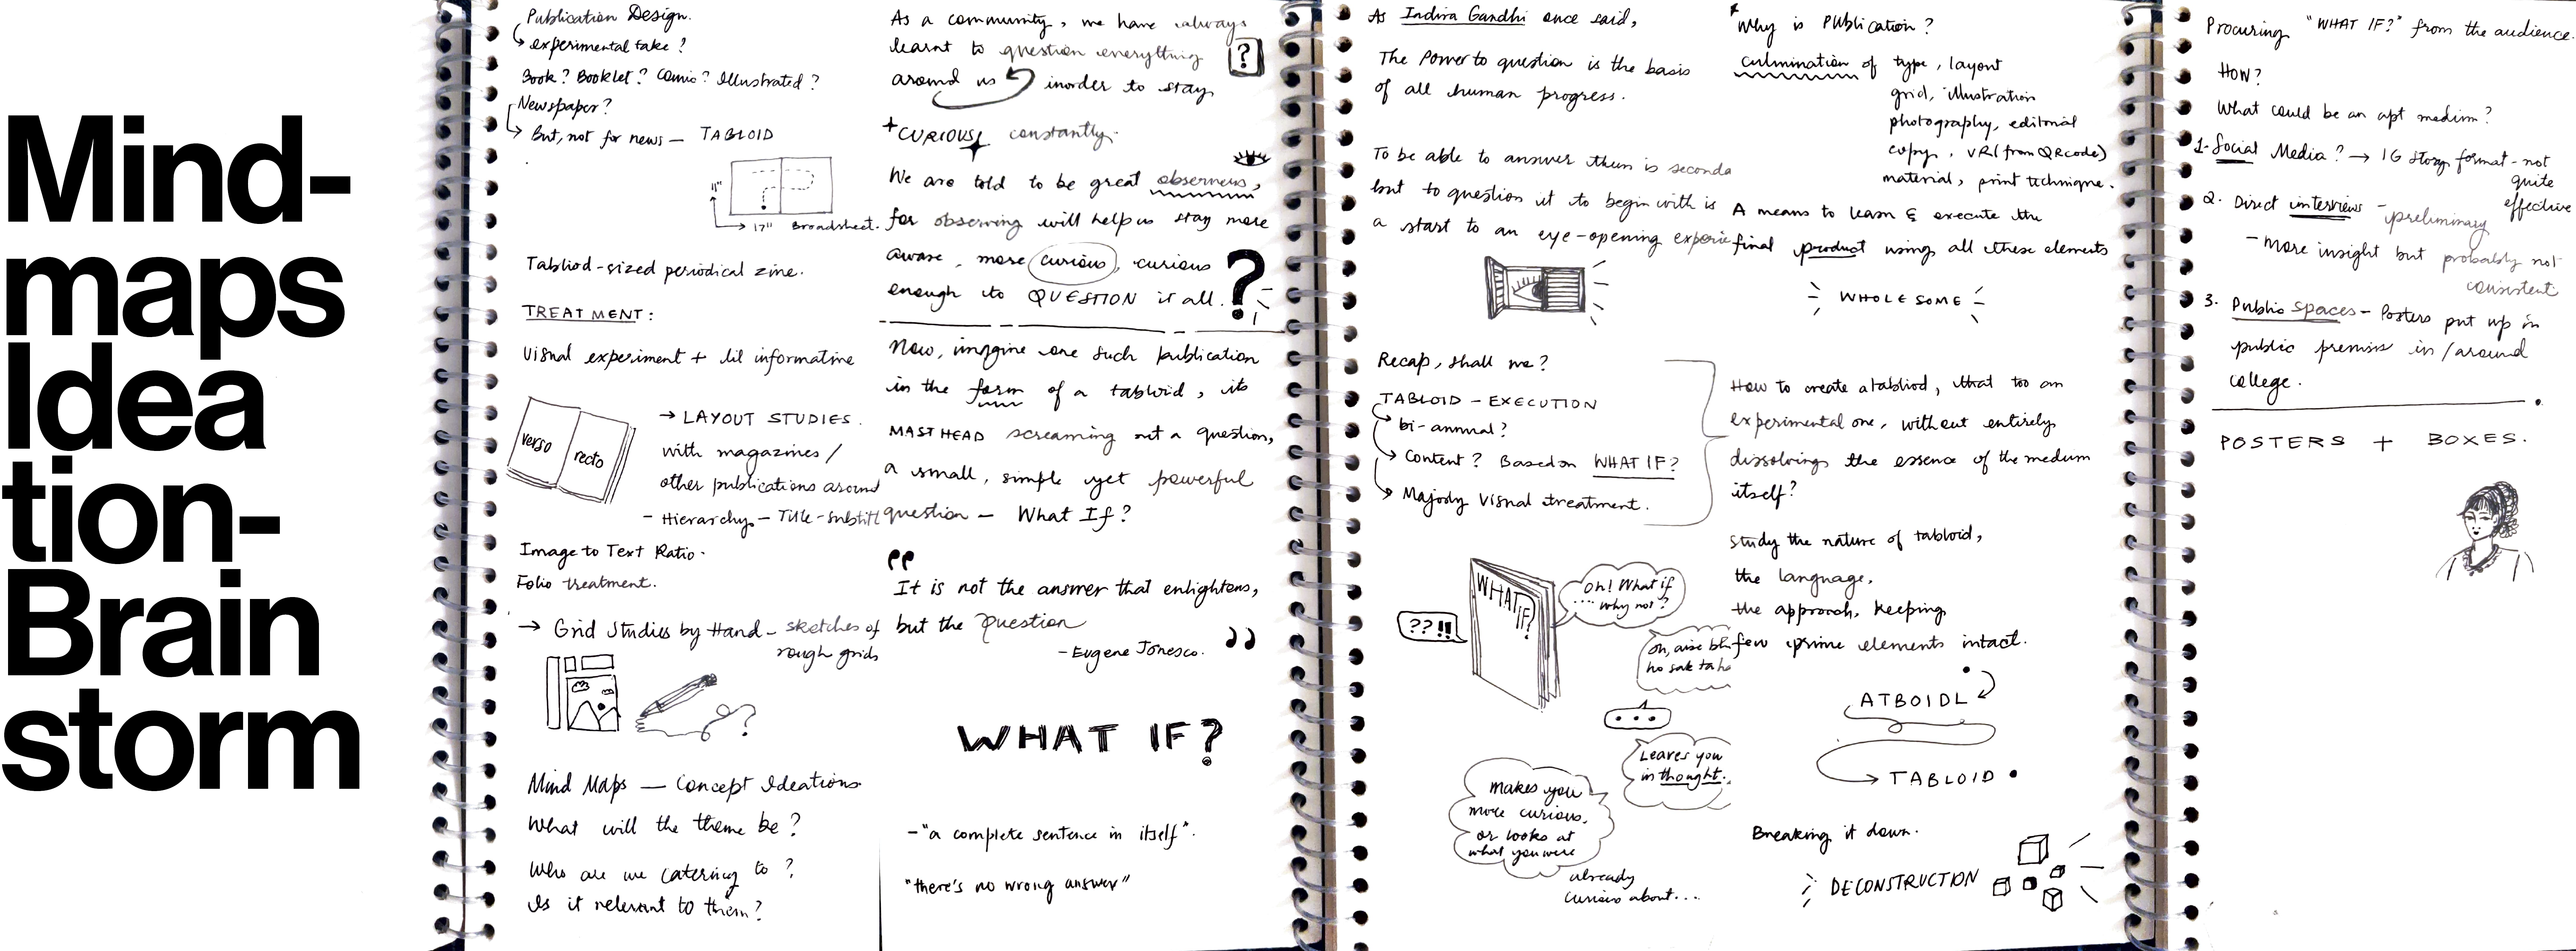 Mind-
maps
Idea
tion-
Brain
storm
Publication Design.
experimental take?
Book? Booklet? Comic? Illustrated?
Newspaper?
But, not for news — TABLOID
11"
17" Broadsheet.
Tabliod-sized periodical zine.
TREATMENT:
Visual experiment + lil informative
verso
recto
→ LAYOUT STUDIES.
with magazines/
other publications around
- Hierarchy - Title-subtitl
Image to Text Ratio.
Folio treatment.
→ Grid Studies by Hand - sketches of
rough grids
?
Mind Maps — Concept Ideations.
What will the theme be?
Who are we catering to?
Is it relevant to them?
As a community, we have always
learnt to question everything
around us inorder to stay
?
CURIOUS constantly.
We are told to be great observers,
for observing will help us stay more
aware, more curious, curious
enough to QUESTION it all.
?
Now, imagine one such publication
in the form of a tabloid, its
MASTHEAD screaming out a question,
a small, simple yet powerful
question — What If?
"
It is not the answer that enlightens,
but the Question
"
-Eugene Ionesco.
WHAT IF?
-"a complete sentence in itself".
"there's no wrong answer"
As Indira Gandhi once said,
The Power to question is the basis
of all human progress.
To be able to answer them is seconda
but to question it to begin with is
a start to an eye-opening experie
Recap, shall we?
TABLOID - EXECUTION
bi-annual?
Content? Based on WHAT IF?
Majorly Visual treatment.
WHAT IF?
??!!
Oh! What if
.... why not?
oh, aise bh
ho sakta ha
...
Leaves you
in thought.
makes you
more curious,
or looks at
what you were
already
curious about...
*Why is Publication?
culmination of type, layout
grid, illustration
photography, editorial
copy, VR (from QR code)
material, print technique.
A means to learn & execute the
final product using all these elements
WHOLESOME
How to create a tabliod, that too an
experimental one, without entirely
dissolving the essence of the medium
itself?
Study the nature of tabloid,
the language,
the approach, keeping
few prime elements intact.
ATBOIDL
TABLOID
Breaking it down.
DECONSTRUCTION
Procuring "WHAT IF?" from the audience.
How?
What could be an apt medium?
1- Social Media? → IG Story format - not
quite
effective
2. Direct interviews - preliminary
- More insight but probably not
consistent
3. Public spaces - Posters put up in
public premises in/around
college.
POSTERS + BOXES.